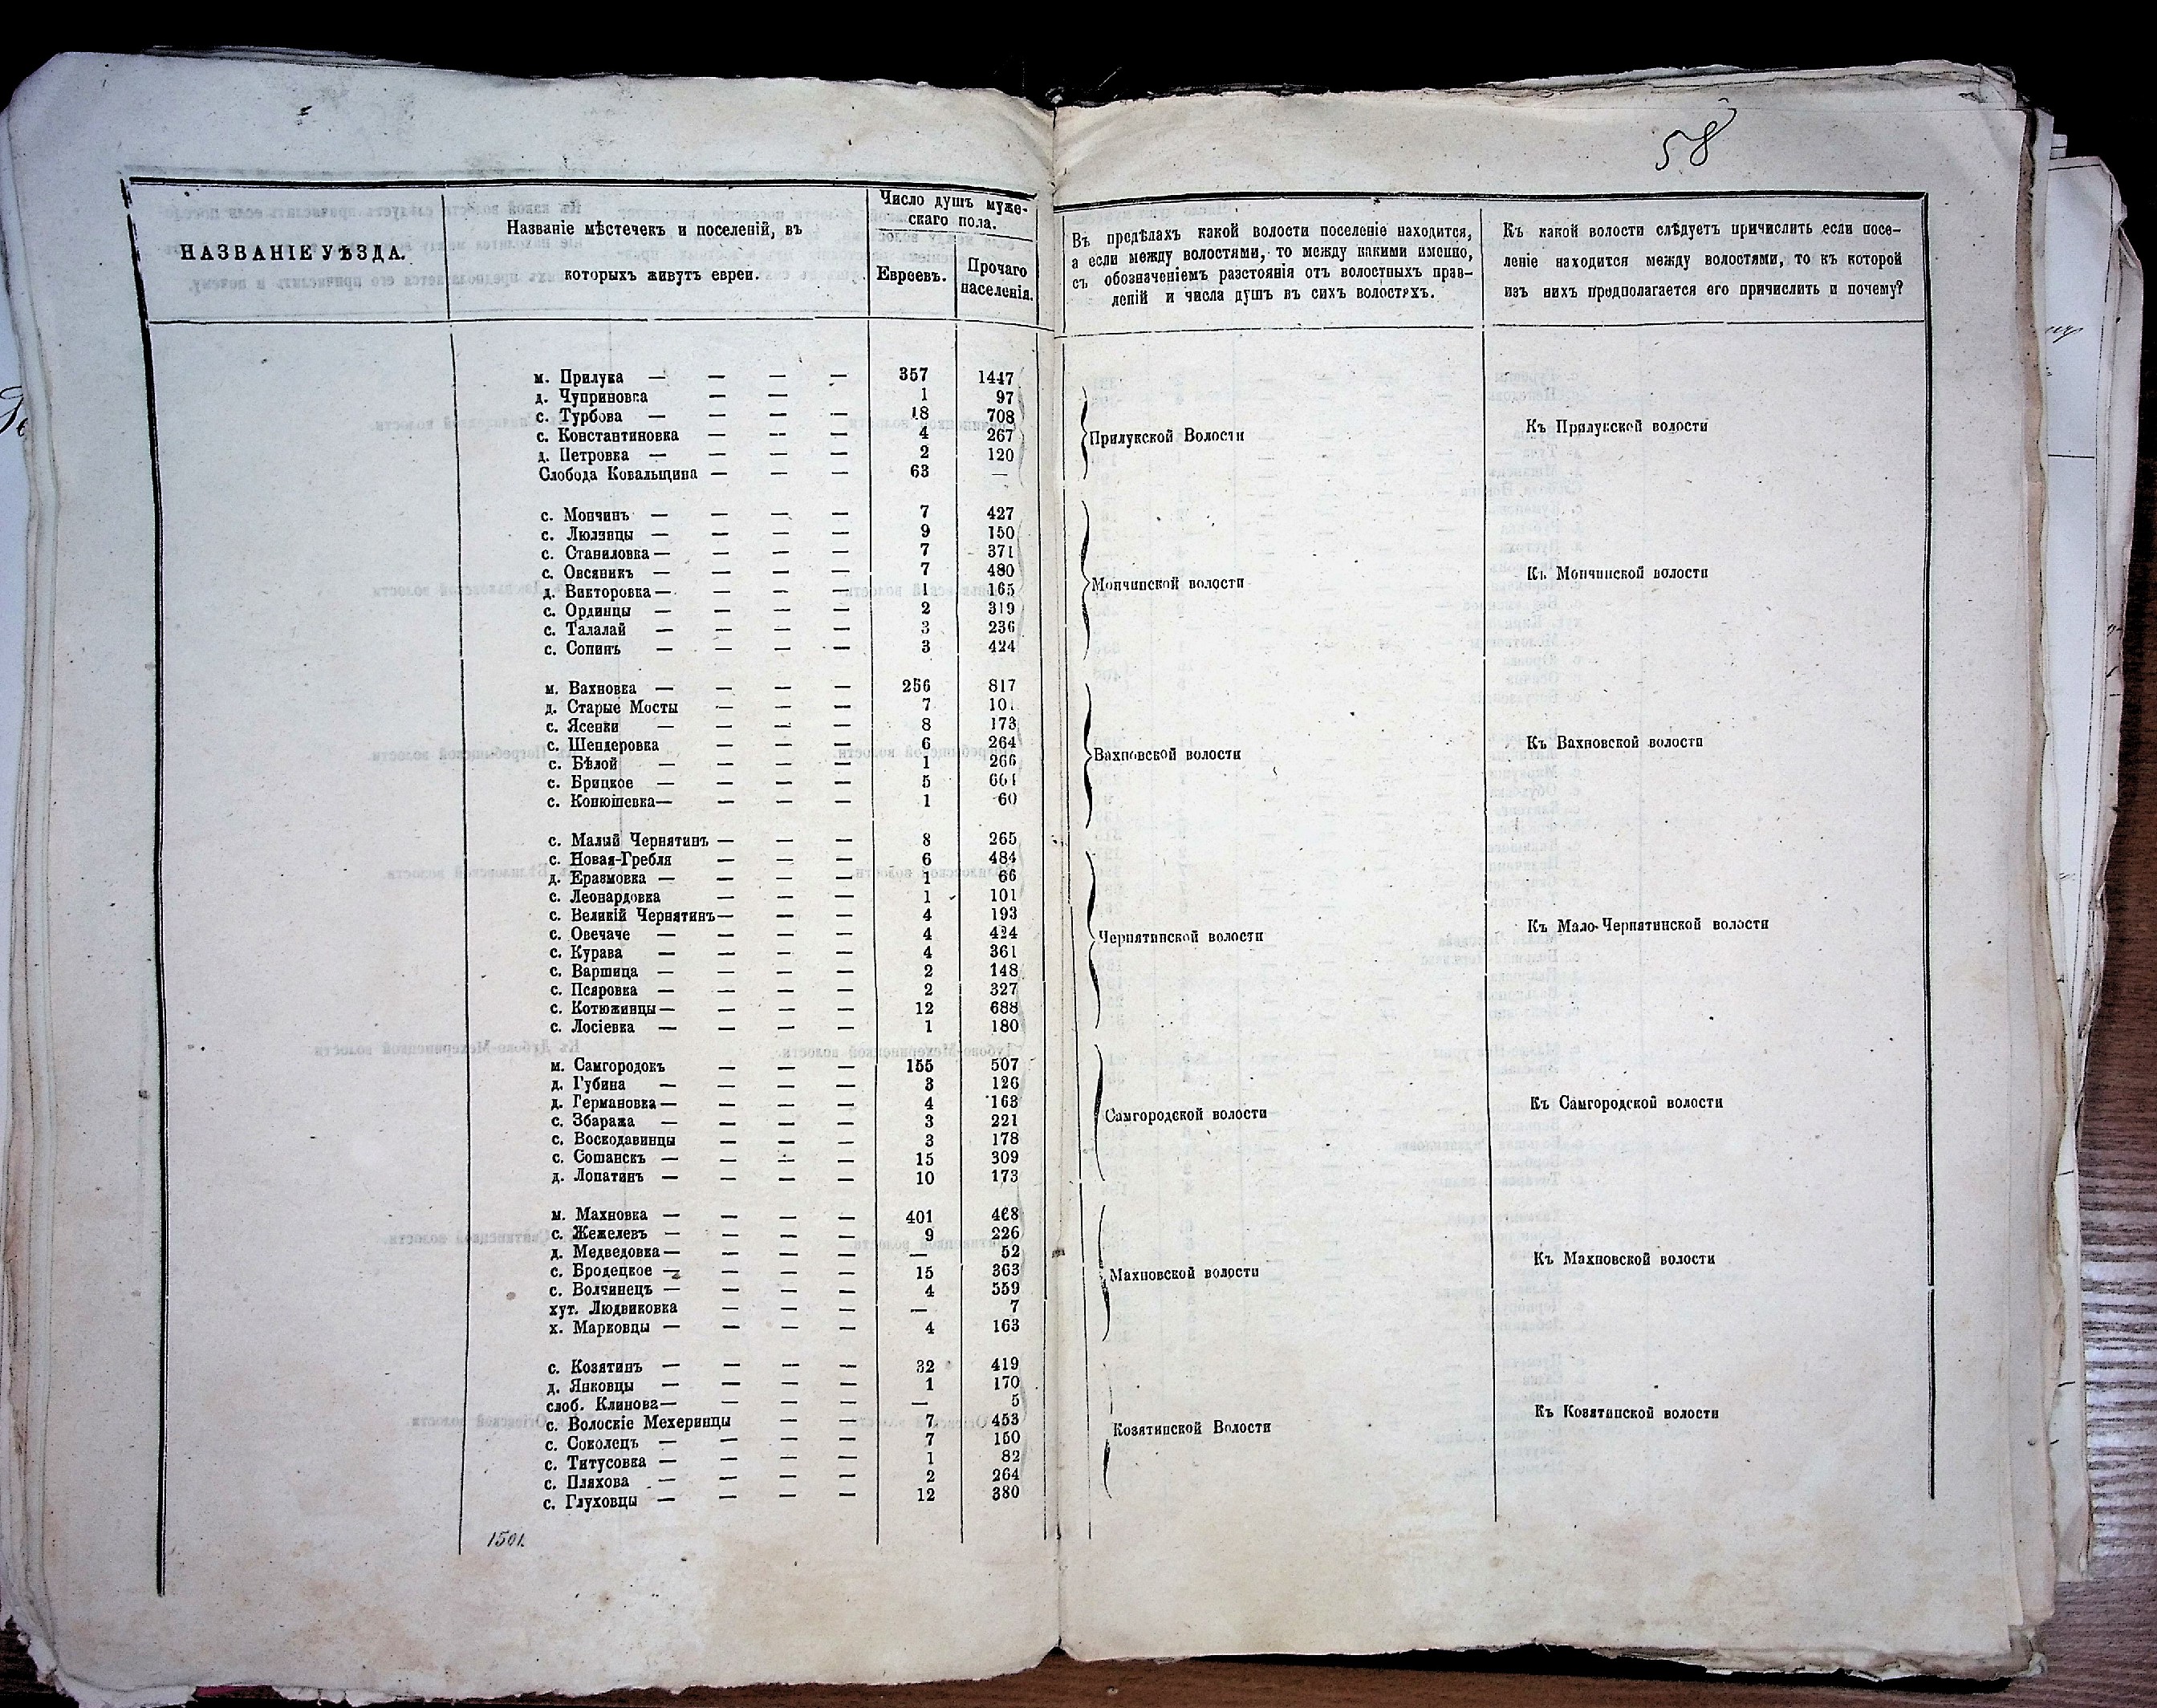 58
НАЗВАНІЕ УѢЗДА.
Названіе мѣстечекъ и поселеній, въ
которыхъ живутъ евреи.
Число душъ муже-
скаго пола.
Евреевъ.
Прочаго
населенія.
Въ предѣлахъ какой волости поселеніе находится,
а если между волостями, то между какими именно,
съ обозначеніемъ разстоянія отъ волостныхъ прав-
леній и числа душъ въ сихъ волостяхъ.
Къ какой волости слѣдуетъ причислить если посе-
леніе находится между волостями, то къ которой
изъ нихъ предполагается его причислить и почему?
м. Прилука — — — — 357 1447
д. Чуприновка — — 1 97
с. Турбова — — — — 18 708
с. Константиновка — — — 4 267
д. Петровка — — — — 2 120
Слобода Ковальщина — — — 63 —
Прилукской Волости
Къ Прилукской волости
с. Мончинъ — — — — 7 427
с. Люлинцы — — — — 9 150
с. Станиловка — — — — 7 371
с. Овсяникъ — — — — 7 480
д. Викторовка — — — — 1 165
с. Ординцы — — — — 2 319
с. Талалай — — — — 3 236
с. Сопинъ — — — — 3 424
Мончинской волости
Къ Мончинской волости
м. Вахновка — — — — 256 817
д. Старые Мосты — — — 7 10
с. Ясенки — — — — 8 173
с. Шендеровка — — — 6 264
с. Бѣлой — — — — 1 266
с. Брицкое — — — — 5
с. Конюшевка — — — — 1 60
Вахновской волости
Къ Вахновской волости
с. Малый Чернятинъ — — — 8 265
с. Новая-Гребля — — — 6 484
д. Еразмовка — — — — 1 66
с. Леонардовка — — — 1 101
с. Великій Чернятинъ — — — 4 193
с. Овечаче — — — — 4 424
с. Курава — — — — 4 361
с. Варшица — — — — 2 148
с. Псяровка — — — — 2 327
с. Котюжинцы — — — — 12 688
с. Лосіевка — — — — 1 180
Чернятинской волости
Къ Мало-Чернятинской волости
м. Самгородокъ — — — 155 507
д. Губина — — — — 3 126
д. Германовка — — — — 4 163
с. Збаража — — — — 3 221
с. Воскодавинцы — — — 3 178
с. Сошанскъ — — — — 15 309
д. Лопатинъ — — — — 10 173
Самгородской волости
Къ Самгородской волости
м. Махновка — — — — 401 468
с. Жежелевъ — — — — 9 226
д. Медведовка — — — — — 52
с. Бродецкое — — — — 15 363
с. Волчинецъ — — — — 4 559
хут. Людвиковка — — — — 7
х. Марковцы — — — — 4 163
Махновской волости
Къ Махновской волости
с. Козятинъ — — — — 32 419
д. Янковцы — — — — 1 170
слоб. Клинова — — — — — 5
с. Волоскіе Мехеринцы — — 7 453
с. Соколецъ — — — — 7 150
с. Титусовка — — — — 1 82
с. Пляхова — — — — 2 264
с. Глуховцы — — — — 12 380
Козятинской Волости
Къ Козятинской волости
1501.